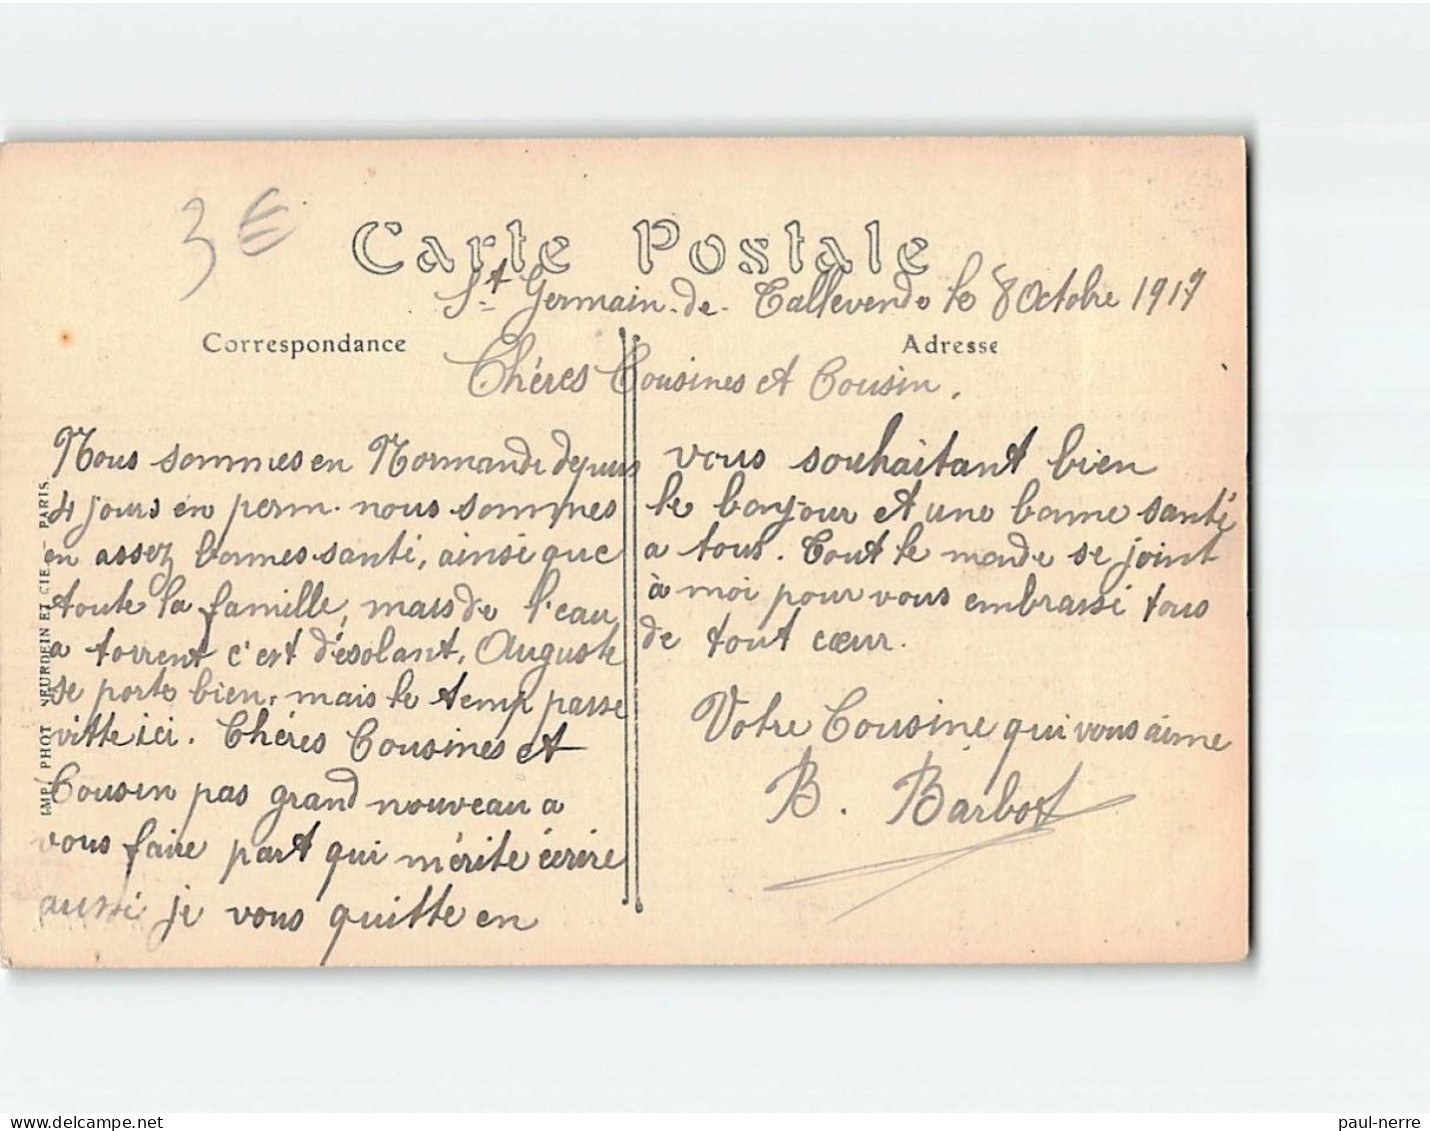 3€
Carte Postale
St Germain-de-Tallevende le 8 Octobre 1917
Correspondance
Adresse
Chéres Cousines et Cousin,
Nous sommes en Normandi depuis
4 jours en perm. nous sommes
en assez bonnes santé, ainsi que
toute la famille, mais de l'eau
a torrent c'est désolant, Auguste
se porte bien, mais le temp passe
vitte ici. Chéres Cousines et
Cousin pas grand nouveau a
vous faire part qui mérite écrire
aussi je vous quitte en
vous souhaitant bien
le bonjour et une bonne santé
a tous. Tout le monde se joint
à moi pour vous embrassé tous
de tout cœur.
Votre Cousine qui vous aime
B. Barbot
IMP. PHOT. NEURDEIN ET CIE - PARIS.
paul-nerre